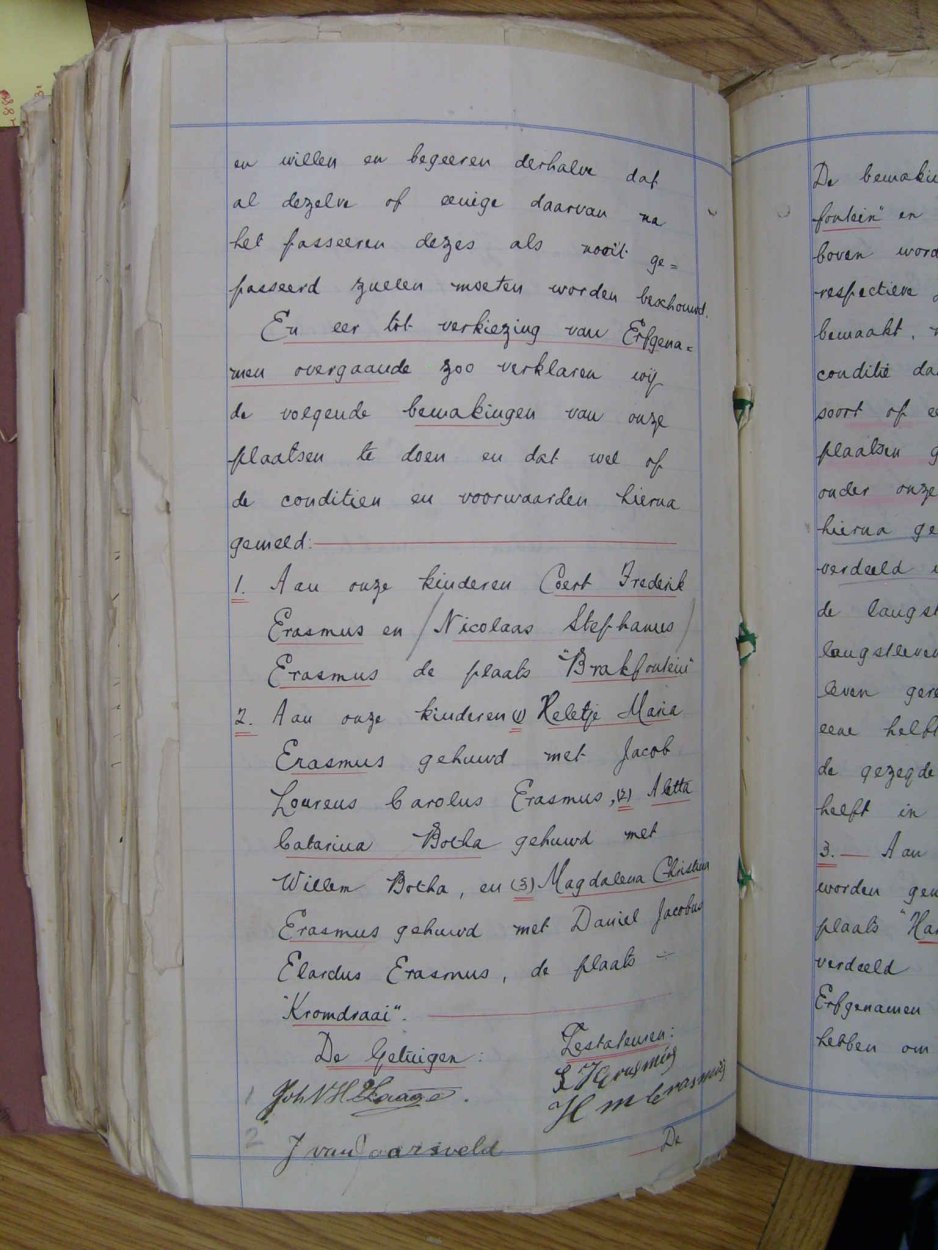 en willen en begeeren derhalve dat
al dezelve of eenige daarvan na
het passeeren dezes als nooit ge=
passeerd zullen moeten worden beschouwd.
En eer tot verkiezing van Erfgena=
men overgaande zoo verklaren wij
de volgende bemakingen van onze
plaatsen te doen en dat wel of
de conditien en voorwaarden hierna
gemeld:
1. Aan onze kinderen Coert Frederik
Erasmus en Nicolaas Stephanus
Erasmus de plaats "Brakfontein"
2. Aan onze kinderen (1) Heletje Maria
Erasmus gehuwd met Jacob
Lourens Carolus Erasmus, (2) Aletta
Catarina Botha gehuwd met
Willem Botha, en (3) Magdalena Christina
Erasmus gehuwd met Daniel Jacobus
Elardus Erasmus, de plaats –
"Kromdraai".
De Getuigen: Testateuren:
1
H M Erasmus
2 J van Jaarsveld
De
De bemakin
fontein" en
boven word
respectieve
bemaakt,
conditie da
soort of e
plaatsen g
onder onze
hierna ge
verdeeld
de langst
langstleven
leven gere
eene helft
de gezegde
helft in
3. — Aan
worden gen
plaats "Ha
verdeeld
Erfgenamen
hebben om